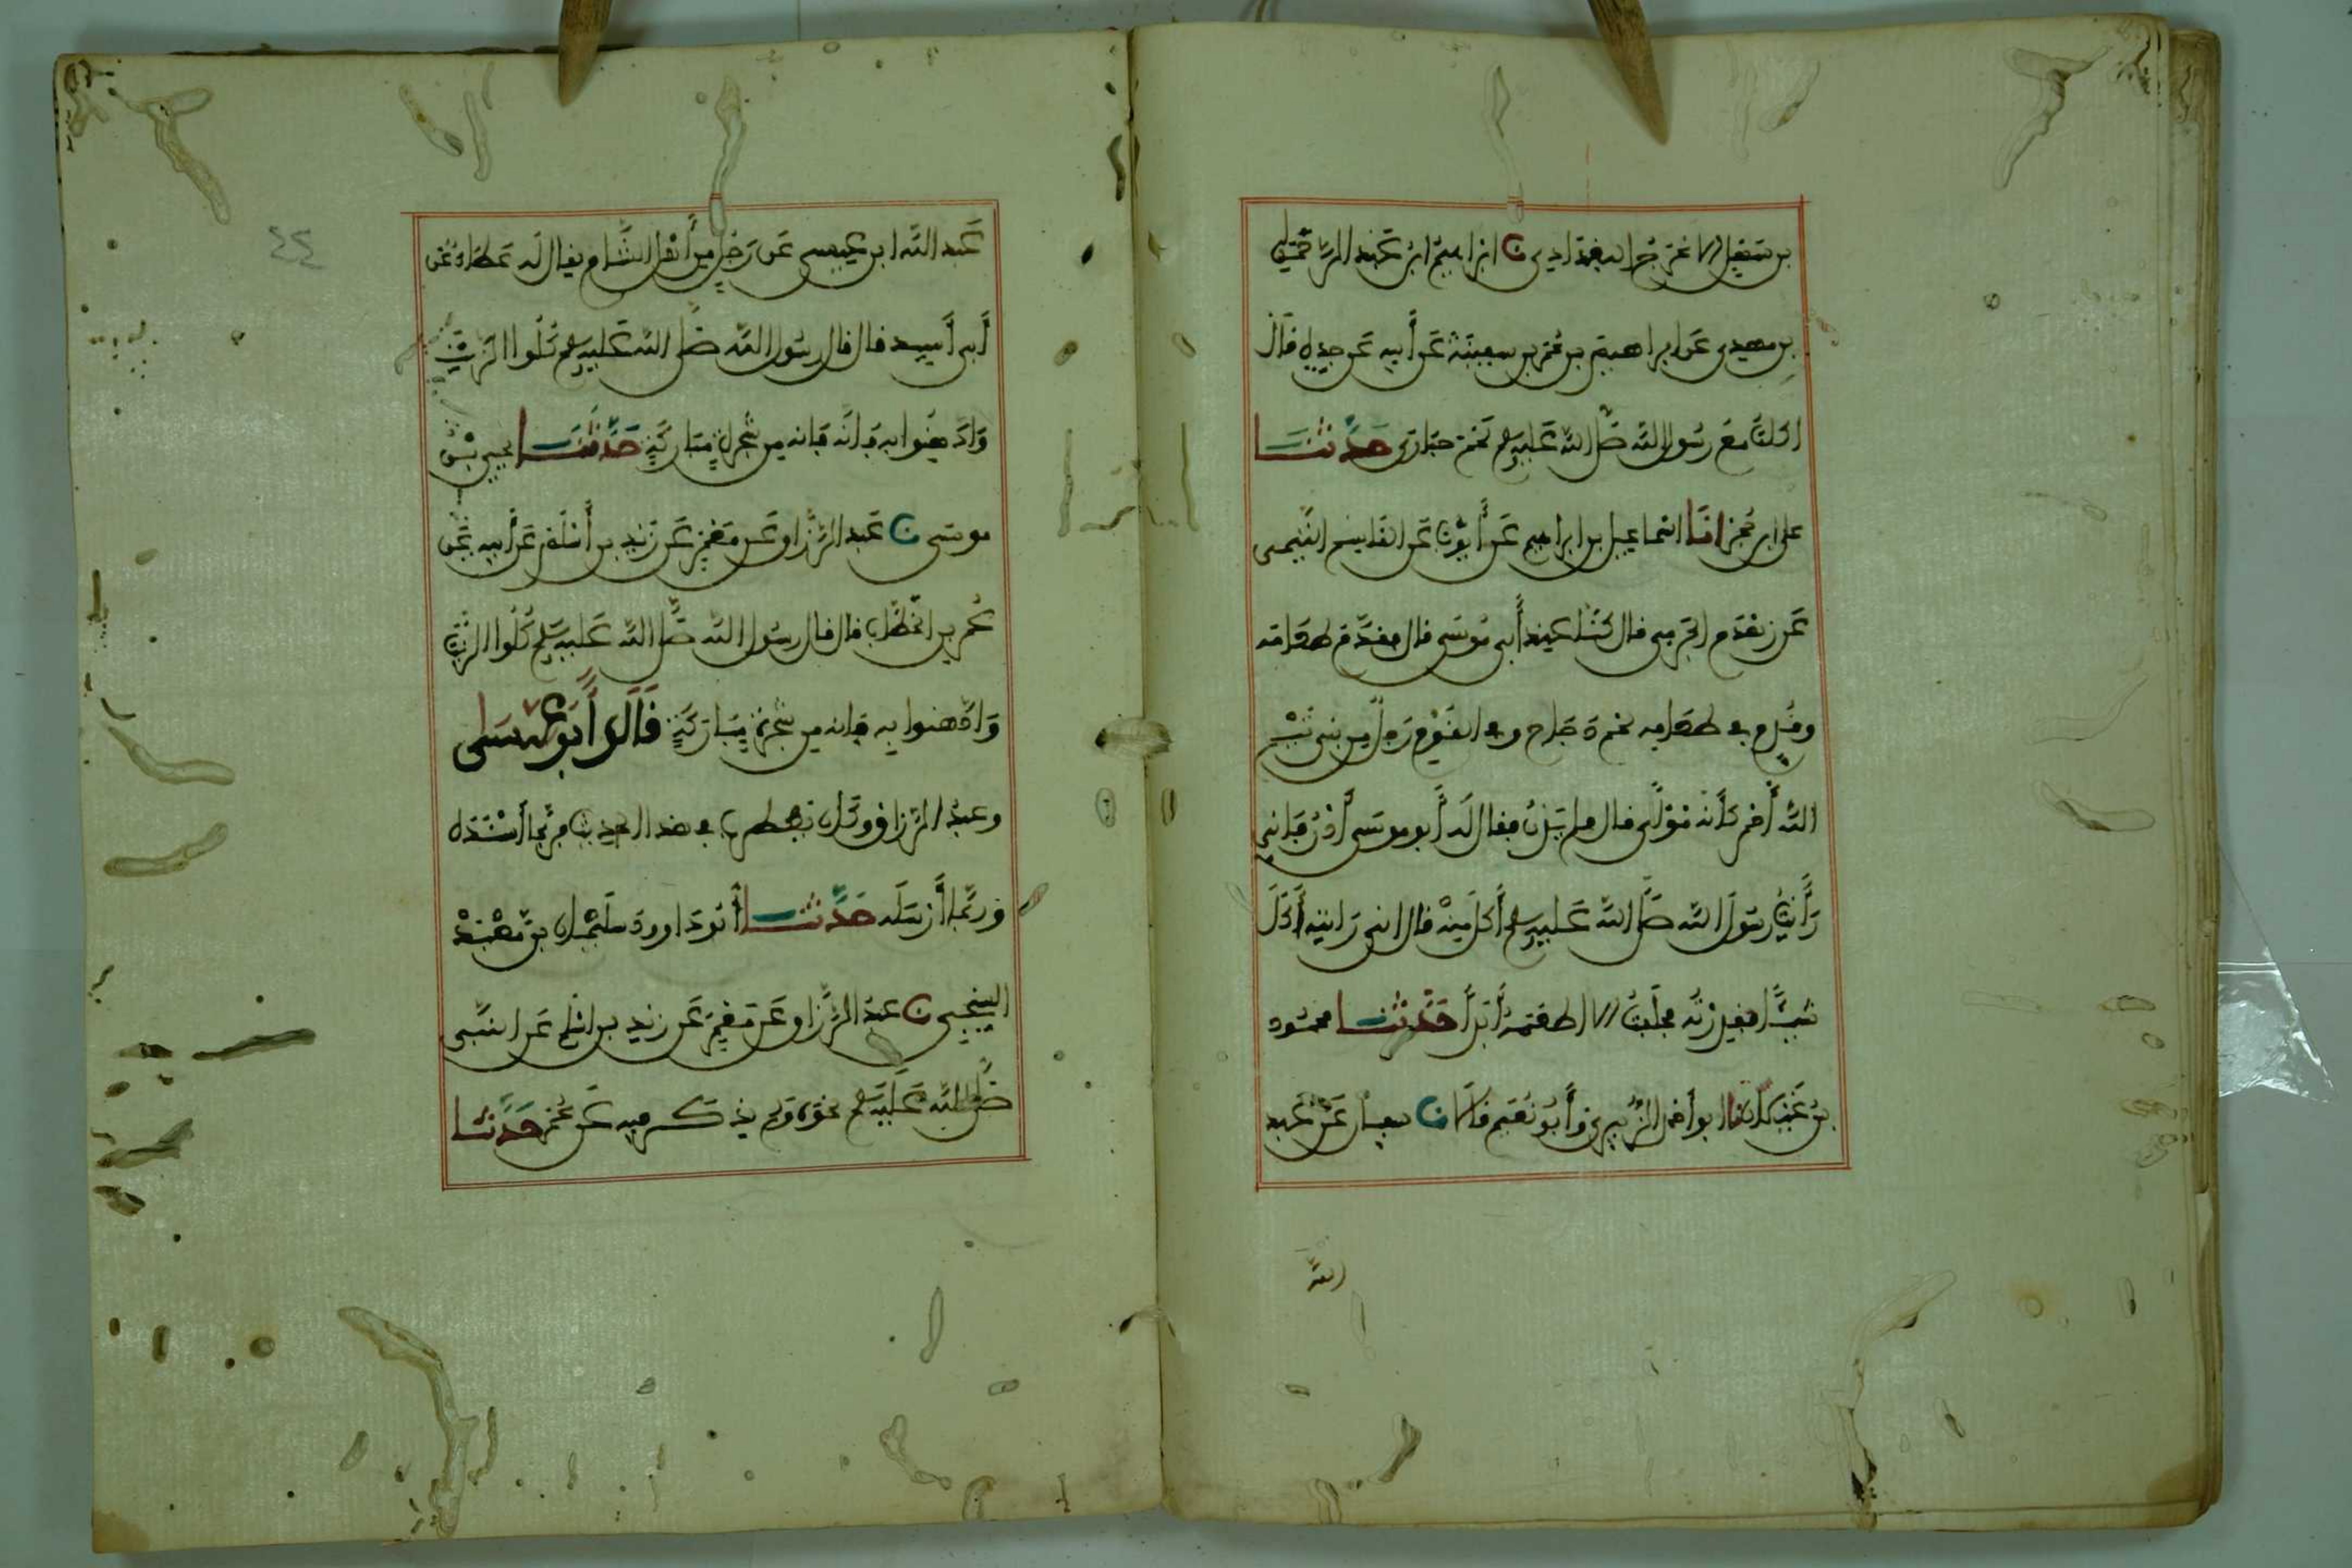 بن سهل الاعرج البغدادي نا ابراهيم ابن عبد الرحمن
بن مهدي عن ابراهيم بن عمر بن سفينة عن أبيه عن جده قال
اكلت مع رسول الله صلى الله عليه وسلم لحم حبارى حدثنا
على ابن حجر انا اسماعيل بن ابراهيم عن أيوب عن القاسم التميمى
عن زهدم الجرمي قال كنا عند أبي موسى قال فقدم طعامه
وقدم في طعامه لحم دجاج وفي القوم رجل من بني تيم
الله أحمر كأنه مولى قال فلم يدن فقال له أبو موسى أدن فاني
رأيت رسول الله صلى الله عليه وسلم أكل منه قال اني رأيته أكل
شيئا فقذرته فحلفت الا اطعمه أبدا حدثنا محمود
بن غيلان نا ابو أحمد الزبيري وأبو نعيم قالا نا سفيان عن عبد
الله
عبد الله ابن عيسى عن رجل من أهل الشام يقال له عطاء عن
أبي أسيد قال قال رسول الله صلى الله عليه وسلم كلوا الزيت
وادهنوا به فانه فانه من شجرة مباركة حدثنا يحيى بن
موسى نا عبد الرزاق عن معمر عن زيد بن أسلم عن أبيه عن
عمر بن الخطاب قال قال رسول الله صلى الله عليه وسلم كلوا الزيت
وادهنوا به فانه من شجرة مباركة قال أبو عيسى
وعبد الرزاق وكان يضطرب في هذا الحديث فربما أسنده
وربما أرسله حدثنا أبو داوود سليمان بن معبد
السنجي نا عبد الرزاق عن معمر عن زيد بن اسلم عن النبي
صلى الله عليه وسلم نحوه ولم يذكر فيه عن عمر حدثنا